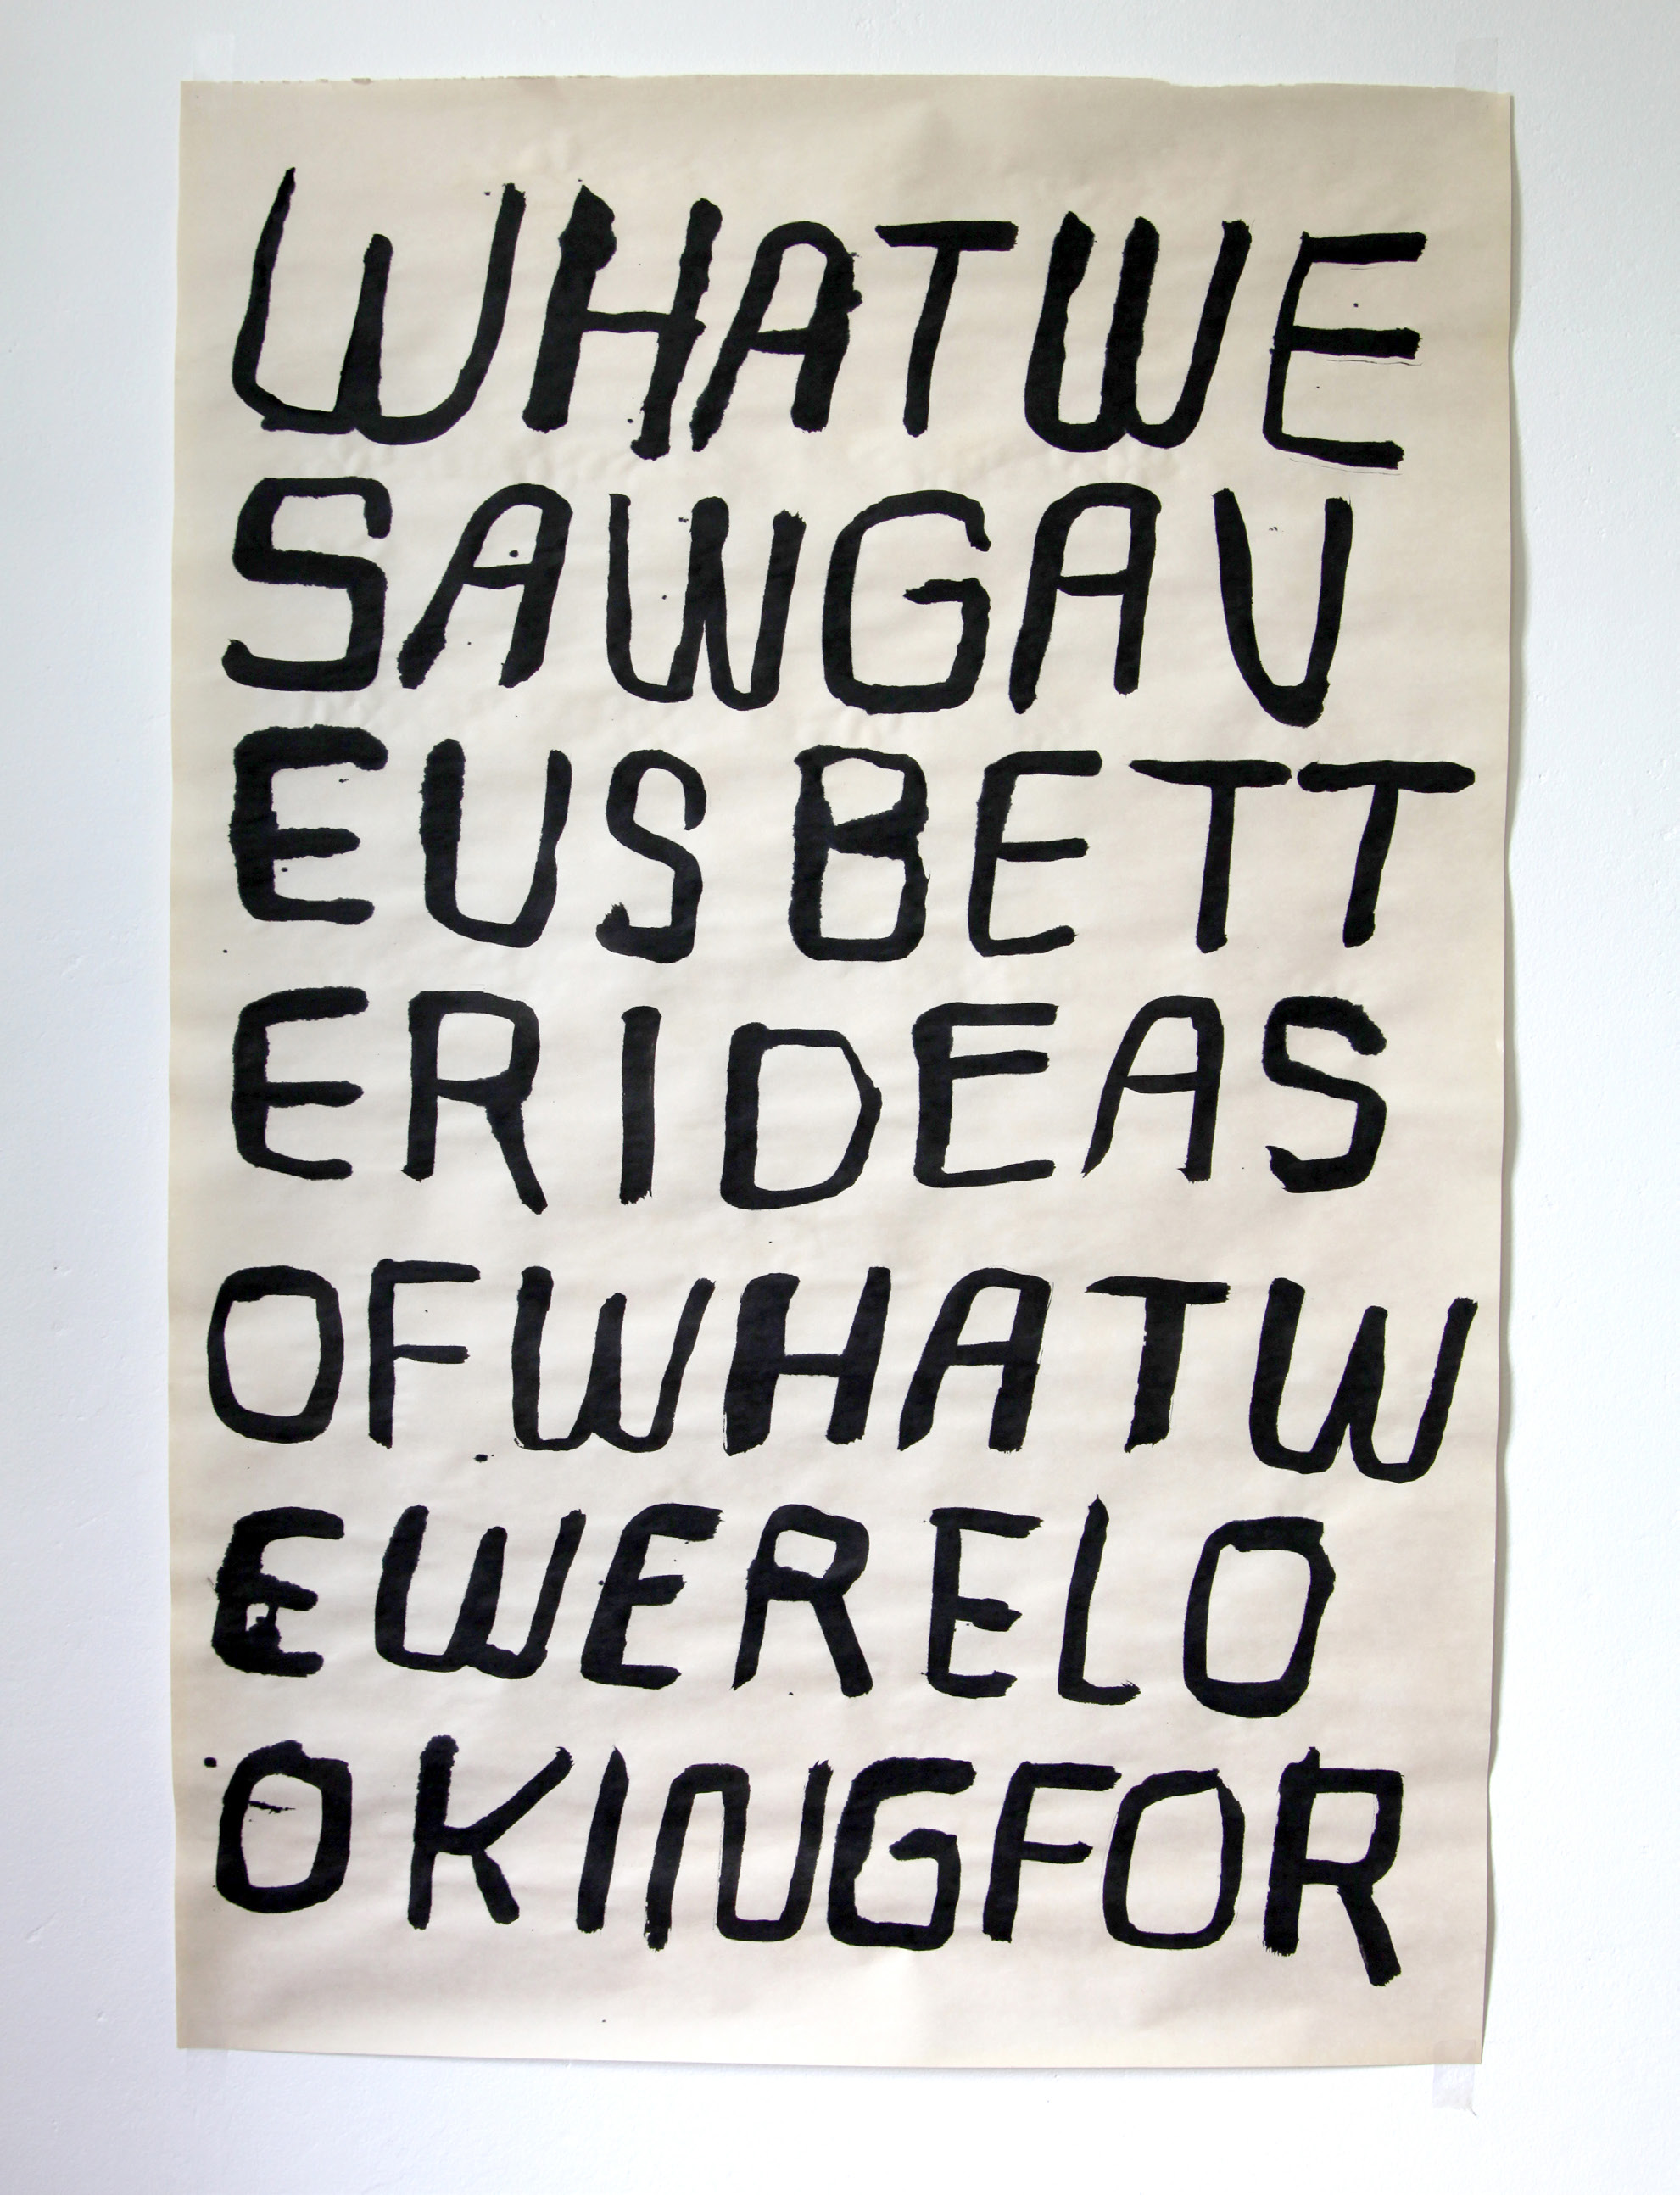 WHATWE
SAWGAV
EUS BETT
ER IDEAS
OFWHATW
EWERELO
OKINGFOR